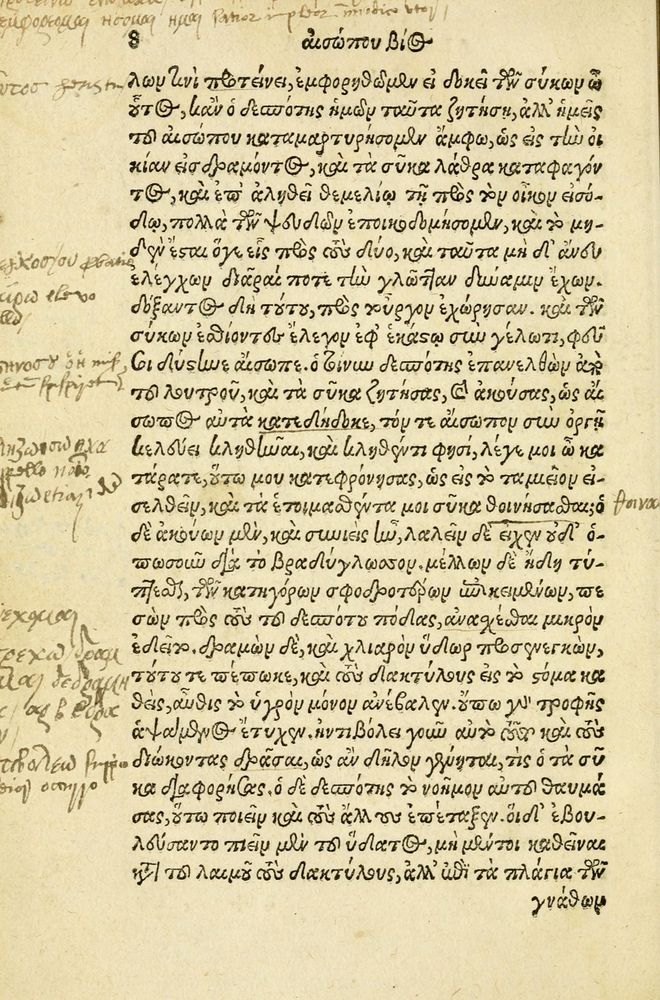 8 αἰσώπου βίος
λων τινὶ προτείνει, ἐμφορηθῶμεν εἰ δοκεῖ τῶν σύκων ὦ
οὗτος, κἂν ὁ δεσπότης ἡμῶν ταῦτα ζητήσῃ, ἀλλ' ἡμεῖς
τοῦ αἰσώπου καταμαρτυρήσομεν ἄμφω, ὡς εἰς τὴν οἰ
κίαν εἰσδραμόντος, καὶ τὰ σῦκα λάθρα καταφαγόν
τος, καὶ ἐπ' ἀληθεῖ θεμελίῳ τῇ πρὸς τὸν οἶκον εἰσό-
δῳ, πολλὰ τῶν ψευδῶν ἐποικοδομήσομεν, καὶ τὸ μη-
δὲν ἔσται ὅγε εἷς πρὸς τοὺς δύο, καὶ ταῦτα μὴ δ' ἄνευ
ἐλέγχων διᾶραί ποτε τὴν γλῶτταν δύναμιν ἔχων.
δόξαντος δὴ τούτου, πρὸς τοὔργον ἐχώρησαν. καὶ τῶν
σύκων ἐσθίοντες ἔλεγον ἐφ' ἑκάστῳ σὺν γέλωτι, φεῦ
σοι δύστηνε αἴσωπε. ὁ τοίνυν δεσπότης ἐπανελθὼν ἀπὸ
τοῦ λουτροῦ, καὶ τὰ σῦκα ζητήσας, καὶ ἀκούσας, ὡς αἴ
σωπος αὐτὰ κατεδήδοκε, τόν τε αἴσωπον σὺν ὀργῇ
κελεύει κληθῆναι, καὶ κληθέντι φησί, λέγε μοι ὦ κα
τάρατε, οὕτω μου κατεφρόνησας, ὡς εἰς τὸ ταμιεῖον εἰ-
σελθεῖν, καὶ τὰ ἑτοιμασθέντα μοι σῦκα θοινήσασθαι; ὁ
δὲ ἀκούων μὲν, καὶ συνιεὶς ἦν, λαλεῖν δὲ εἶχεν οὐδ' ὁ-
πωσοῦν διὰ τὸ βραδύγλωσσον. μέλλων δὲ ἤδη τύ-
πτεσθαι, τῶν κατηγόρων σφοδροτέρων ἐπικειμένων, πε
σὼν πρὸς τοὺς τοῦ δεσπότου πόδας, ἀνασχέσθαι μικρὸν
ἐδεῖτο. δραμὼν δὲ, καὶ χλιαρὸν ὕδωρ προσενεγκὼν,
τοῦτό τε πέπωκε, καὶ τοὺς δακτύλους εἰς τὸ στόμα κα
θεὶς, αὖθις τὸ ὑγρὸν μόνον ἀνέβαλεν. οὔπω γὰρ τροφῆς
ἁψάμενος ἔτυχεν. ἠντιβόλει γοῦν αὐτὸ τοῦτο καὶ τοὺς
διώκοντας δρᾶσαι, ὡς ἂν δῆλον γένηται, τίς ὁ τὰ σῦ
κα διαφορήσας. ὁ δὲ δεσπότης τὸ νοῆμον αὐτοῦ θαυμά
σας, οὕτω ποιεῖν καὶ τοὺς ἄλλους ἐπέταξεν. οἱ δ' ἐβου-
λεύσαντο πιεῖν μὲν τοῦ ὕδατος, μὴ μέντοι καθεῖναι
κατὰ τοῦ λαιμοῦ τοὺς δακτύλους, ἀλλ' ἐπὶ τὰ πλάγια τῶν
γνάθων